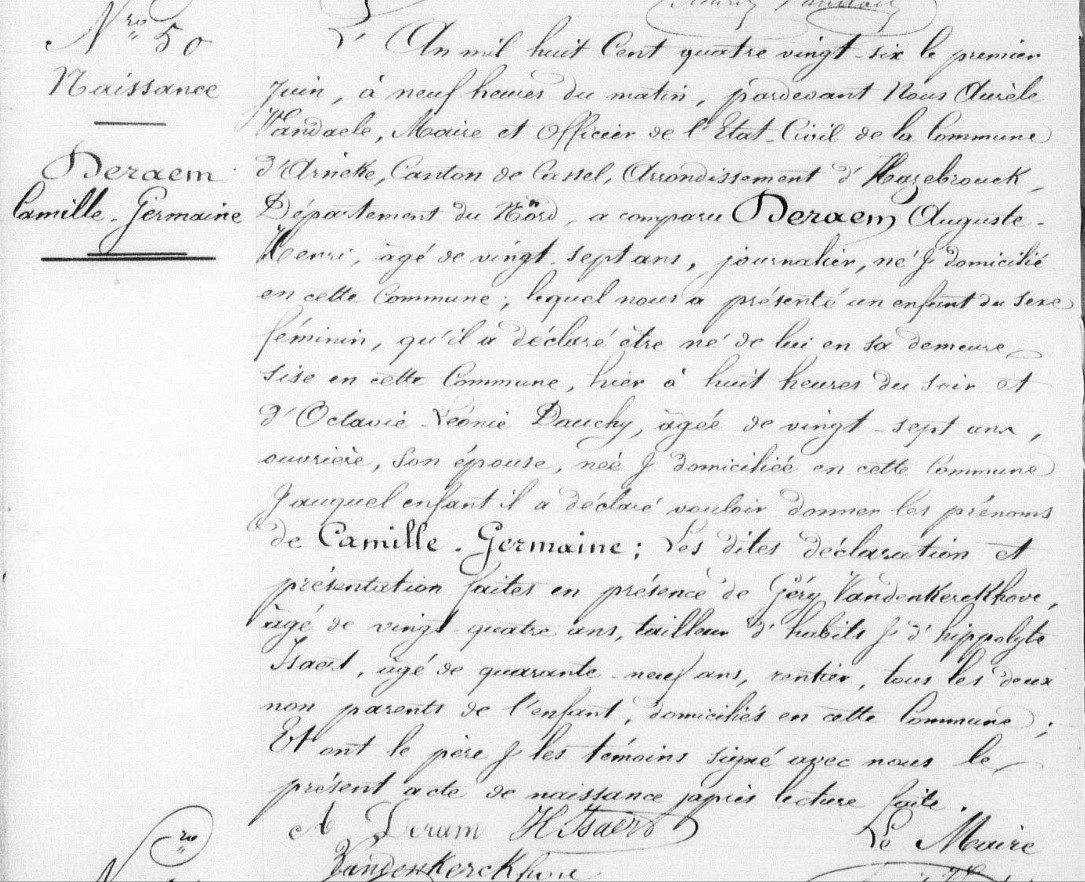 Nro 50
Naissance
Deraem
Camille-Germaine
L'An mil huit Cent quatre vingt-six le premier
Juin, à neuf heures du matin, pardevant Nous Aurèle
Vandaele, Maire et Officier de l'Etat-Civil de la Commune
d'Arnèke, Canton de Cassel, Arrondissement d'Hazebrouck,
Département du Nord, a comparu Deraem Auguste-
Henri, âgé de vingt-sept ans, journalier, né & domicilié
en cette Commune; lequel nous a présenté un enfant du sexe
féminin, qu'il a déclaré être né de lui en sa demeure
sise en cette Commune, hier à huit heures du soir et
d'Octavie-Léonie Dauchy, âgée de vingt-sept ans,
ouvrière, son épouse, née & domiciliée en cette Commune
& auquel enfant il a déclaré vouloir donner les prénoms
de Camille-Germaine; Les dites déclaration et
présentation faites en présence de Géry Vandenkerckhove,
âgé de vingt-quatre ans, tailleur d'habits & d'hippolyte
Isaert, âgé de quarante-neuf ans, rentier, tous les deux
non parents de l'enfant, domiciliés en cette Commune;
Et ont le père & les témoins signé avec nous le
présent acte de naissance après lecture faite.
A Deram H Isaert Le Maire
Vandenkerckhove